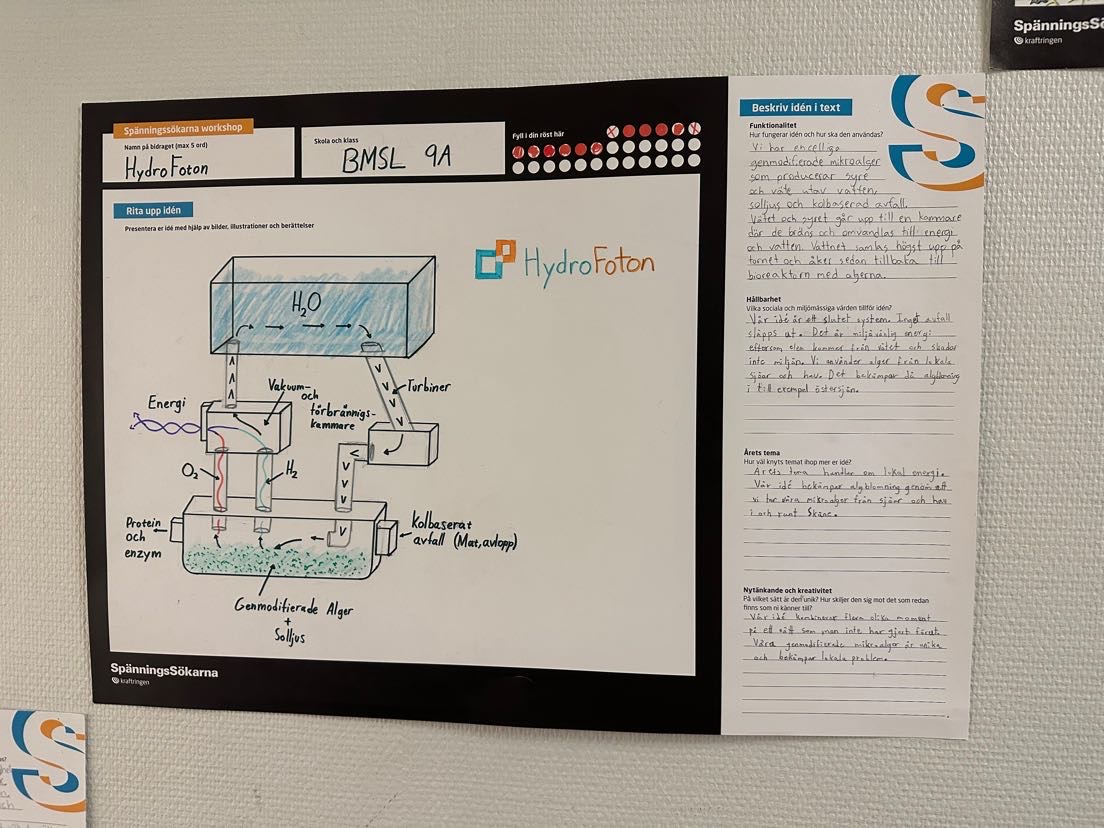 SpänningsS
kraftringen
Spänningssökarna workshop
Namn på bidraget (max 5 ord)
HydroFoton
Skola och klass
BMSL 9A
Fyll i din röst här
Rita upp idén
Presentera er idé med hjälp av bilder, illustrationer och berättelser
HydroFoton
H₂O
Turbiner
Vakuum-
och
förbrännigs-
kammare
Energi
O₂
H₂
Protein
och
enzym
kolbaserat
avfall (Mat, avlopp)
Genmodifierade Alger
+
Solljus
SpänningsSökarna
kraftringen
Beskriv idén i text
Funktionalitet
Hur fungerar idén och hur ska den användas?
Vi har encelliga
genmodifierade mikroalger
som producerar syre
och väte utav vatten,
solljus och kolbaserad avfall.
Vätet och syret går upp till en kammare
där de bräns och omvandlas till energi
och vatten. Vattnet samlas högst upp på
tornet och åker sedan tillbaka till
bioreaktorn med algerna.
Hållbarhet
Vilka sociala och miljömässiga värden tillför idén?
Vår idé är ett slutet system. Inget avfall
släpps ut. Det är miljövänlig energi
eftersom elen kommer från vätet och skadar
inte miljön. Vi använder alger från lokala
sjöar och hav. Det bekämpar då algblomning
i till exempel östersjön.
Årets tema
Hur väl knyts temat ihop mer er idé?
Årets tema handlar om lokal energi.
Vår idé bekämpar algblomning genom att
vi tar våra mikroalger från sjöar och hav
i och runt Skåne.
Nytänkande och kreativitet
På vilket sätt är den unik? Hur skiljer den sig mot det som redan
finns som ni känner till?
Vår idé kombinerar flera olika moment
på ett sätt som man inte har gjort förut.
Våra genmodifierade mikroalger är unika
och bekämpar lokala problem.